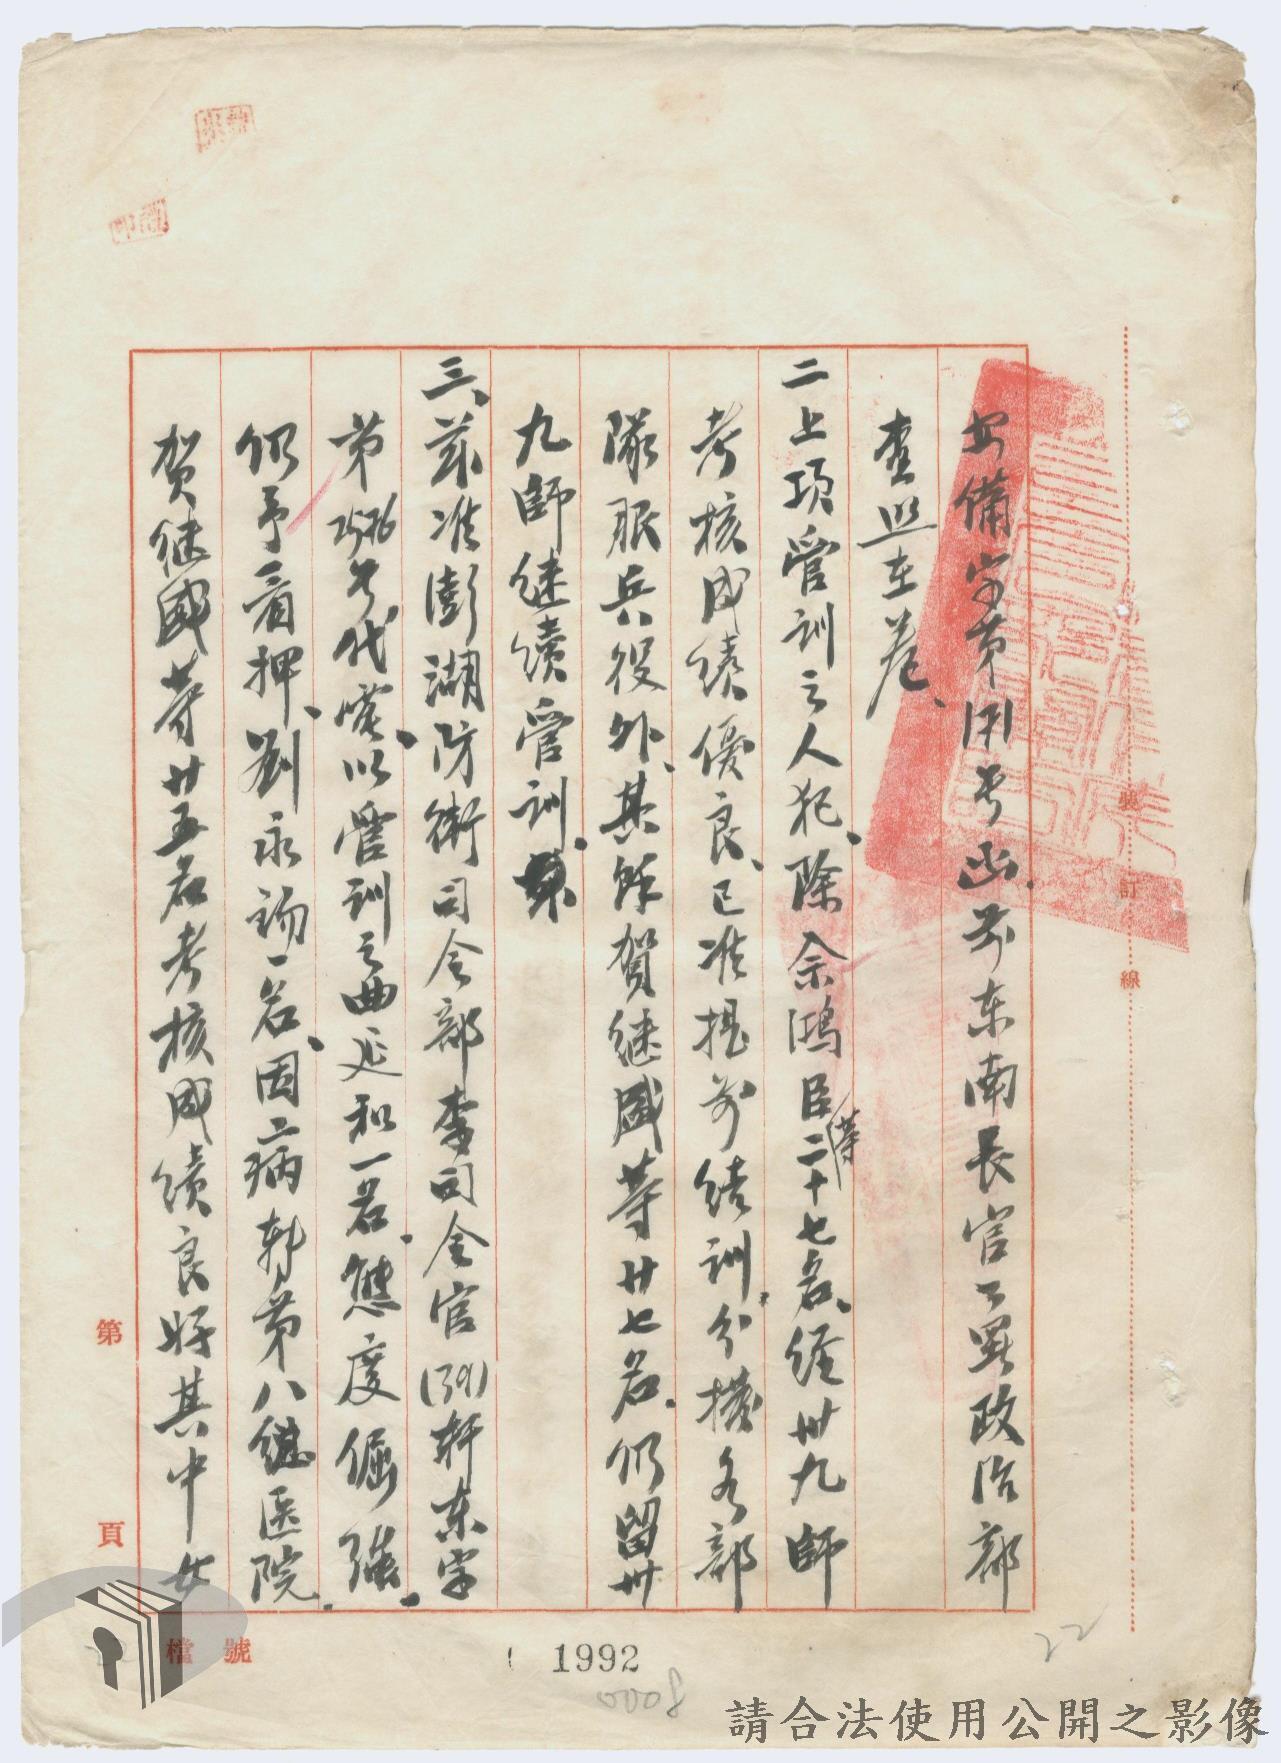 安備字第 号函前东南長官公署政治部
查照在卷、
二上項管訓之人犯、除余鴻臣等二十七名、经卅九師
考核成绩優良、已准提前结訓、分撥各部
隊服兵役外、其餘賀继盛等廿七名、仍留卅
九師继续管訓、
三、兹准澎湖防衛司令部李司令官(39)轩东字
第2576号代電、以管訓之曲延和一名、態度倔强、
仍予看押、劉永 一名、因病转第八總医院、
賀继盛等廿五名考核成绩良好其中女
裝訂線
第 頁
檔號
1992
0008
22
請合法使用公開之影像